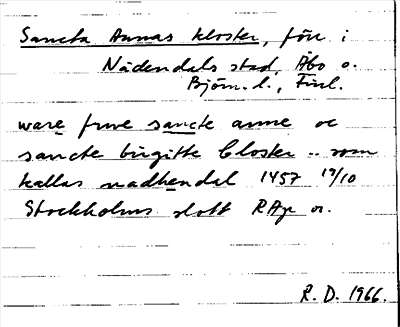 Sancta Annas kloster, förr i
Nådendals stad, Åbo o.
Björn. l., Finl.
ware frwe sancte anne oc
sancte birgitte Closter .. som
kallas nadhendal 1457 17/10
Stockholms slott RAp or.
R. D. 1966.